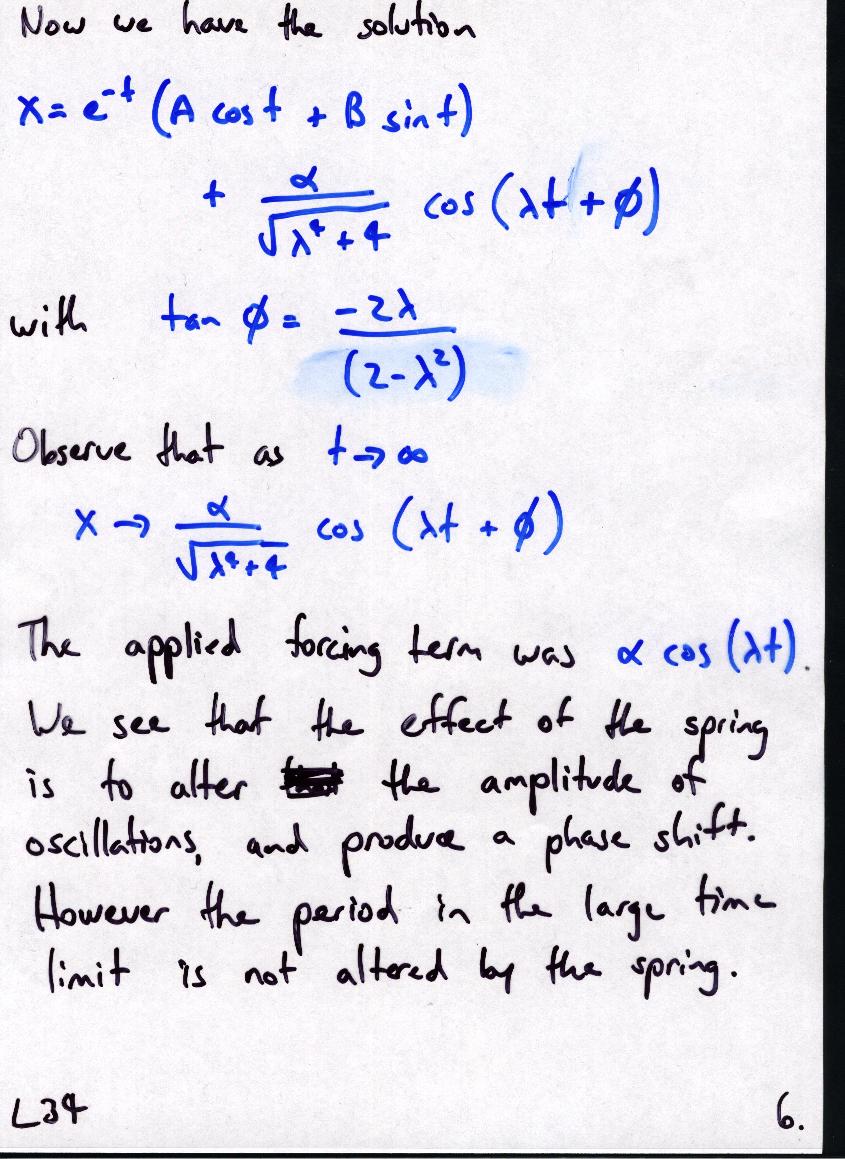 Now we have the solution
x = e^-t (A cos t + B sin t)
+ α / √(λ^4 + 4) cos (λt + φ)
with tan φ = -2λ / (2-λ^2)
Observe that as t → ∞
x → α / √(λ^4 + 4) cos (λt + φ)
The applied forcing term was α cos (λt).
We see that the effect of the spring
is to alter the amplitude of
oscillations, and produce a phase shift.
However the period in the large time
limit is not altered by the spring.
L34 6.